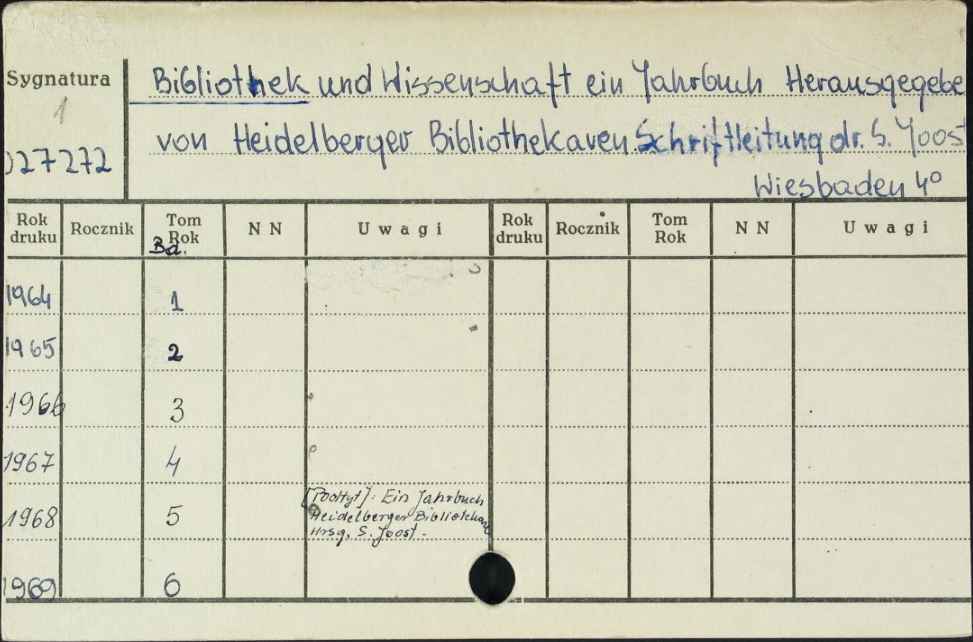 Sygnatura
1
027272
Bibliothek und Wissenschaft ein Jahrbuch Herausgegebe
von Heidelberger Bibliothekaren Schriftleitung dr. S. Joost
Wiesbaden 4°
Rok druku Rocznik Tom Rok N N Uwagi Rok druku Rocznik Tom Rok N N Uwagi
Bd.
1964 1
1965 2
1966 3
1967 4
1968 5 [Podtyt]: Ein Jahrbuch
Heidelberger Bibliothekare
Hrsg. S. Joost.
1969 6